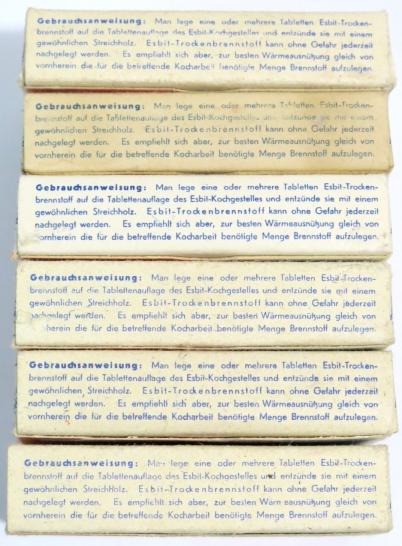 Gebrauchsanweisung: Man lege eine oder mehrere Tabletten Esbit-Trocken-
brennstoff auf die Tablettenauflage des Esbit-Kochgestelles und entzünde sie mit einem
gewöhnlichen Streichholz. Esbit-Trockenbrennstoff kann ohne Gefahr jederzeit
nachgelegt werden. Es empfiehlt sich aber, zur besten Wärmeausnützung gleich von
vornherein die für die betreffende Kocharbeit benötigte Menge Brennstoff aufzulegen.
Gebrauchsanweisung: Man lege eine oder mehrere Tabletten Esbit-Trocken-
brennstoff auf die Tablettenauflage des Esbit-Kochgestelles und entzünde sie mit einem
gewöhnlichen Streichholz. Esbit-Trockenbrennstoff kann ohne Gefahr jederzeit
nachgelegt werden. Es empfiehlt sich aber, zur besten Wärmeausnützung gleich von
vornherein die für die betreffende Kocharbeit benötigte Menge Brennstoff aufzulegen.
Gebrauchsanweisung: Man lege eine oder mehrere Tabletten Esbit-Trocken-
brennstoff auf die Tablettenauflage des Esbit-Kochgestelles und entzünde sie mit einem
gewöhnlichen Streichholz. Esbit-Trockenbrennstoff kann ohne Gefahr jederzeit
nachgelegt werden. Es empfiehlt sich aber, zur besten Wärmeausnützung gleich von
vornherein die für die betreffende Kocharbeit benötigte Menge Brennstoff aufzulegen.
Gebrauchsanweisung: Man lege eine oder mehrere Tabletten Esbit-Trocken-
brennstoff auf die Tablettenauflage des Esbit-Kochgestelles und entzünde sie mit einem
gewöhnlichen Streichholz. Esbit-Trockenbrennstoff kann ohne Gefahr jederzeit
nachgelegt werden. Es empfiehlt sich aber, zur besten Wärmeausnützung gleich von
herein die für die betreffende Kocharbeit benötigte Menge Brennstoff aufzulegen.
Gebrauchsanweisung: Man lege eine oder mehrere Tabletten Esbit-Trocken-
brennstoff auf die Tablettenauflage des Esbit-Kochgestelles und entzünde sie mit einem
gewöhnlichen Streichholz. Esbit-Trockenbrennstoff kann ohne Gefahr jederzeit
nachgelegt werden. Es empfiehlt sich aber, zur besten Wärmeausnützung gleich von
vornherein die für die betreffende Kocharbeit benötigte Menge Brennstoff aufzulegen.
Gebrauchsanweisung: Man lege eine oder mehrere Tabletten Esbit-Trocken-
brennstoff auf die Tablettenauflage des Esbit-Kochgestelles und entzünde sie mit einem
gewöhnlichen Streichholz. Esbit-Trockenbrennstoff kann ohne Gefahr jederzeit
nachgelegt werden. Es empfiehlt sich aber, zur besten Wärmeausnützung gleich von
vornherein die für die betreffende Kocharbeit benötigte Menge Brennstoff aufzulegen.